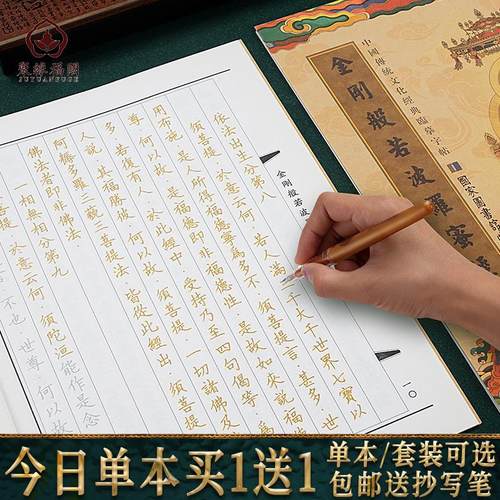 聚緣福閣
JUYUANFUGE
中國傳統文化經典臨摹字帖
金剛般若波羅蜜
金剛般若波
一〇
依法出生分第八
須菩提·於意云何·若人滿 千大千世界七寶以
用布施·是人所得福德寧為多不·須菩提言·甚多·世
尊·何以故·是福德即非福德性·是故如來說福
多·若復有人·於此經中·受持乃至四句偈等
人說·其福勝彼·何以故·須菩提·一切諸佛及
阿耨多羅三藐三菩提法·皆從此經出·須菩提
佛法者即非佛法
一相無相分第九
菩提·於意云何·須陀洹能作是念
不也·世尊·何以故
今日单本买1送1
单本/套装可选
包邮送抄写笔